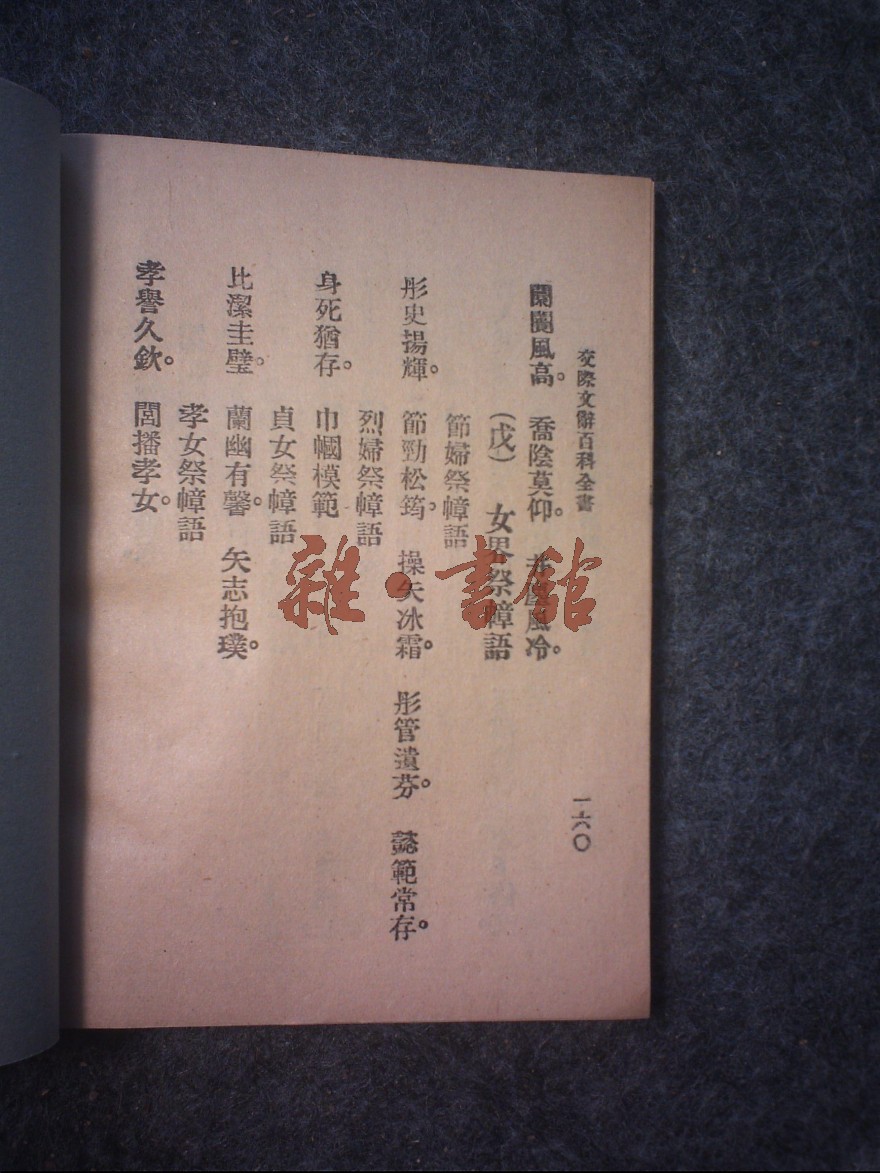 交際文辭百科全書
一六〇
風高。 喬陰莫仰。 風冷。
(戊) 女界祭幛語
節婦祭幛語
彤史揚輝。 節勁松筠。 操矢冰霜。 彤管遺芬。 懿範常存。
烈婦祭幛語
身死猶存。 巾幗模範
貞女祭幛語
比潔圭璧。 蘭幽有馨。 矢志抱璞。
孝女祭幛語
孝譽久欽。 閭播孝女。
雜·書館